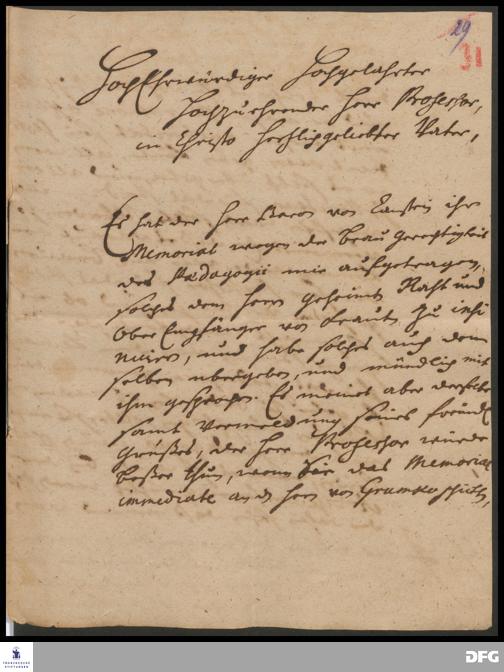 29
HochEhrwürdiger Hochgelahrter
Hochzuehrender Herr Professor,
in Christo Hertzlichgeliebter Vater,
Es hat der Herr Baron von Canstein ihr
Memorial wegen der brau Gerechtigkeit
des Pædagogii mir aufgetragen,
solches dem Herrn geheimt Raht und
Ober Empfänger von Kraut zu insi
nuiren, und habe solches auch dem
selben übergeben, und mündlich mit
ihm gesprochen. Es meinet aber derselbe
samt Vermeldung seines freundl
Grußes, der Herr Professor würde
beßer thun, wenn Sie das Memorial
immediate an dn Herrn von Grumko schickten,
FRANCKESCHE STIFTUNGEN
DFG